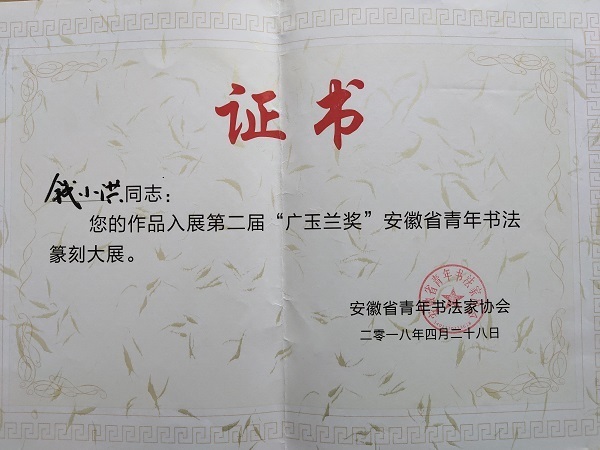 证书
钱小洪同志：
您的作品入展第二届“广玉兰奖”安徽省青年书法
篆刻大展。
安徽省青年书法家协会
二零一八年四月二十八日
省青年书法家